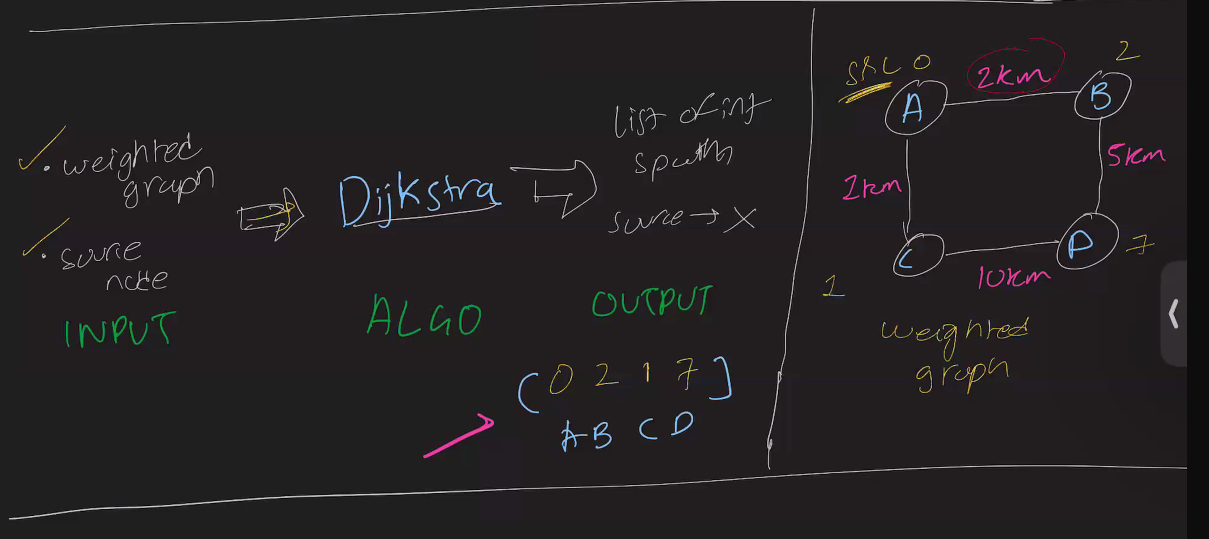 • weighted
graph
• source
node
INPUT
Dijkstra
ALGO
list of int
spath
source → X
OUTPUT
[0 2 1 7]
A B C D
SRC 0
2km
2
A
B
1km
5km
C
10km
D
7
1
weighted
graph